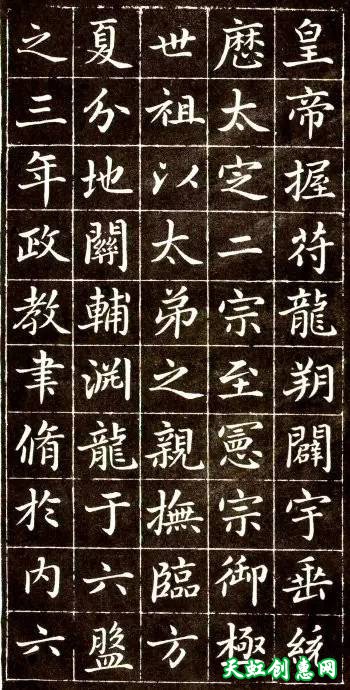 皇帝握符龍朔闢宇垂統
歷太定二宗至憲宗御極
世祖以太弟之親撫臨方
夏分地關輔淵龍于六盤
之三年政教聿脩於内六
天虹创意网